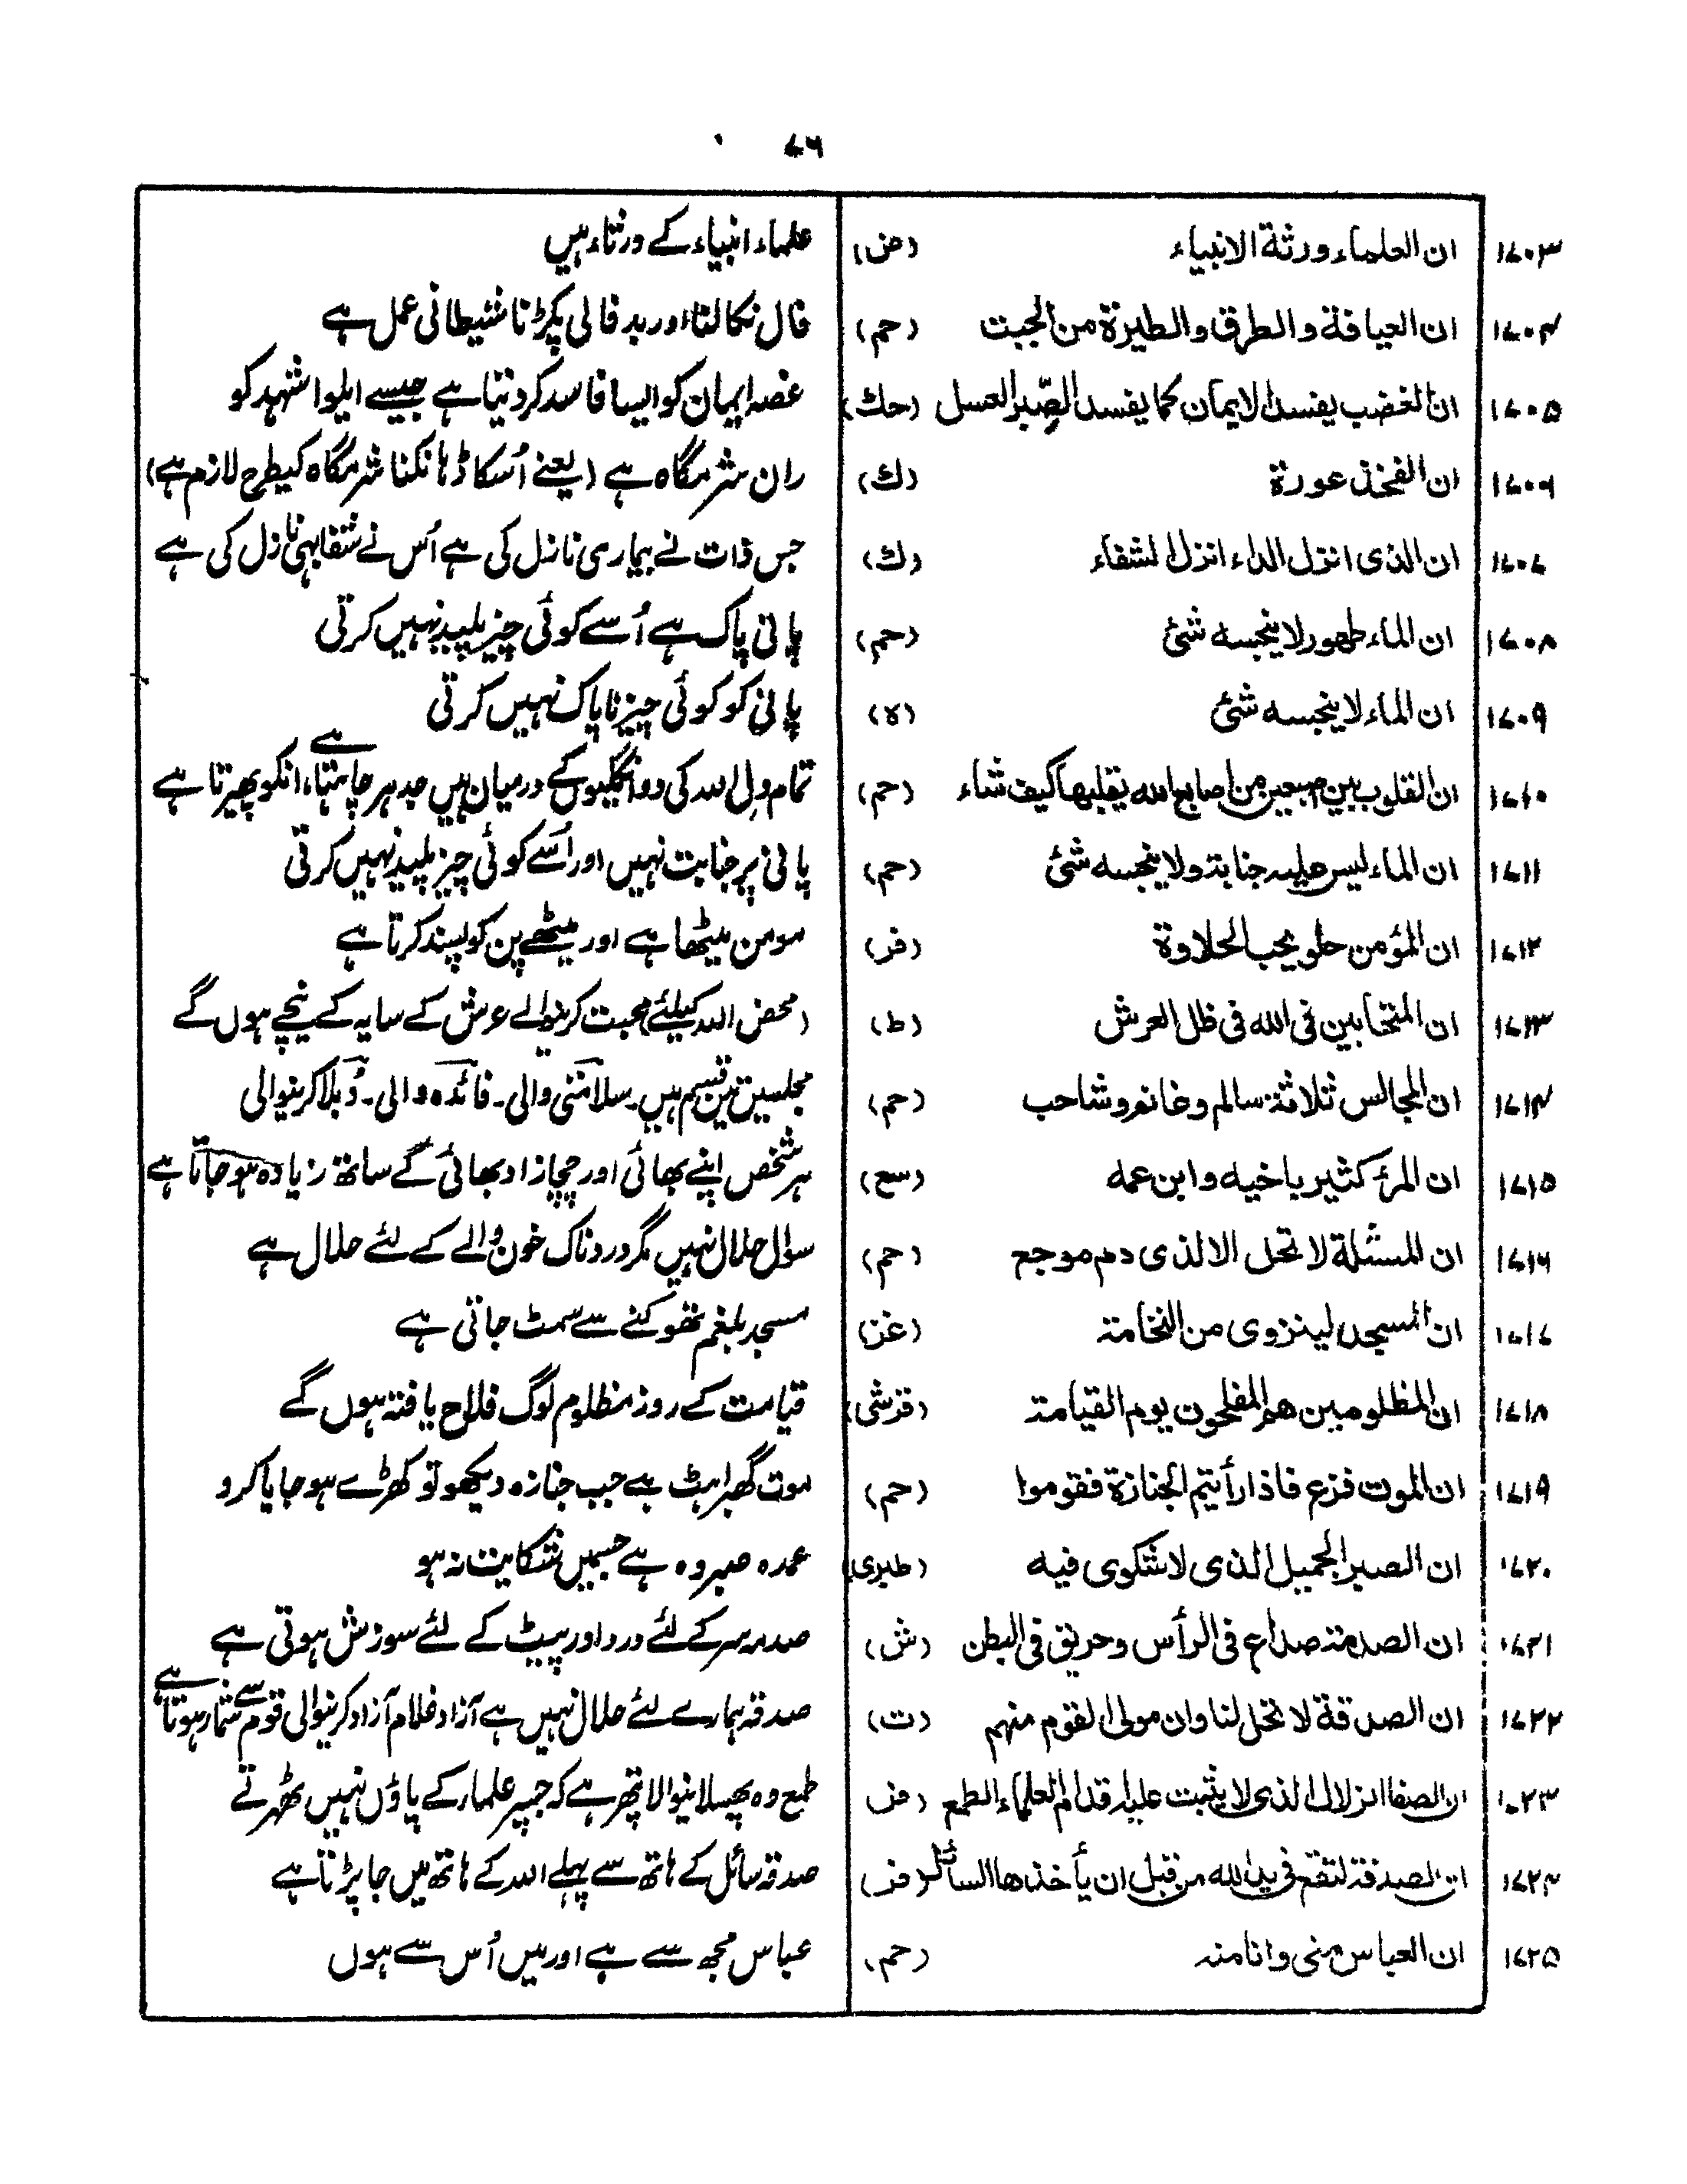 ۷۶
۱۷۰۳ ان العلماء ورثة الانبياء (ض) علماء انبیاء کے ورثاء ہیں
۱۷۰۴ ان العيافة والطرق والطيرة من الجبت (حم) فال نکالنا اور بد فالی پکڑنا شیطانی عمل ہے
۱۷۰۵ ان الغضب يفسد الايمان كما يفسد الصّبر العسل (حك) غصہ ایمان کو ایسا فاسد کر دیتا ہے جیسے ایلوا شہد کو
۱۷۰۶ ان الفخذ عورة (ك) ران شرمگاہ ہے (یعنے اُسکا ڈہانکنا شرمگاہ کیطرح لازم ہے)
۱۷۰۷ ان الذى انزل الداء انزل الشفاء (ك) جس ذات نے بیماری نازل کی ہے اُس نے شفا بہی نازل کی ہے
۱۷۰۸ ان الماء طهور لا ينجسه شئ (حم) پانی پاک ہے اُسے کوئی چیز پلید نہیں کرتی
۱۷۰۹ ان الماء لا ينجسه شئ (ه) پانی کو کوئی چیز ناپاک نہیں کرتی
۱۷۱۰ ان القلوب بين اصبعين من اصابع الله يقلبها كيف شاء (حم) تمام دل اللہ کی دو انگلیوں کے درمیان ہیں جدہر چاہتا ہے انکو پھیرتا ہے
۱۷۱۱ ان الماء ليس عليه جنابة ولا ينجسه شئ (حم) پانی پر جنابت نہیں اور اُسے کوئی چیز پلید نہیں کرتی
۱۷۱۲ ان المؤمن حلو يحب الحلاوة (فر) مومن میٹھا ہے اور میٹھے پن کو پسند کرتا ہے
۱۷۱۳ ان المتحابين فى الله فى ظل العرش (ط) محض اللہ کیلئے محبت کرنیوالے عرش کے سایہ کے نیچے ہوں گے
۱۷۱۴ ان المجالس ثلاثة سالم وغانم وشاحب (حم) مجلسیں تین قسم ہیں۔ سلامتی والی۔ فائدہ والی۔ دُبلا کرنیوالی
۱۷۱۵ ان المرء كثير باخيه وابن عمه (سع) ہر شخص اپنے بھائی اور چچازاد بھائی کے ساتھ زیادہ ہو جاتا ہے
۱۷۱۶ ان المسئلة لا تحل الا لذى دم موجع (حم) سوال حلال نہیں مگر دردناک خون والے کے لئے حلال ہے
۱۷۱۷ ان المسجد لينزوى من النخامة (عز) مسجد بلغم تھوکنے سے سمٹ جاتی ہے
۱۷۱۸ ان المظلومين هم المفلحون يوم القيامة (قرشى) قیامت کے روز مظلوم لوگ فلاح یافتہ ہوں گے
۱۷۱۹ ان الموت فزع فاذا رأيتم الجنازة فقوموا (حم) موت گھبراہٹ ہے جب جنازہ دیکھو تو کھڑے ہو جایا کرو
۱۷۲۰ ان الصبر الجميل الذى لا شكوى فيه (طبرى) عمدہ صبر وہ ہے جسمیں شکایت نہ ہو
۱۷۲۱ ان الصدمة صداع فى الرأس وحريق فى البطن (ش) صدمہ سر کے لئے درد اور پیٹ کے لئے سوزش ہوتی ہے
۱۷۲۲ ان الصدقة لا تحل لنا وان مولى القوم منهم (ت) صدقہ ہمارے لئے حلال نہیں ہے آزاد غلام آزاد کرنیوالی قوم سے شمار ہوتا ہے
۱۷۲۳ ان الصفا الزلال الذى لا يثبت عليه اقدام العلماء الطمع (فر) طمع وہ پھسلانیوالا پتھر ہے کہ جسپر علماء کے پاؤں نہیں ٹھہرتے
۱۷۲۴ ان الصدقة لتقع فى يد الله من قبل ان يأخذها السائل (فر) صدقہ سائل کے ہاتھ سے پہلے اللہ کے ہاتھ میں جا پڑتا ہے
۱۷۲۵ ان العباس منى وانا منه (حم) عباس مجھ سے ہے اور میں اُس سے ہوں